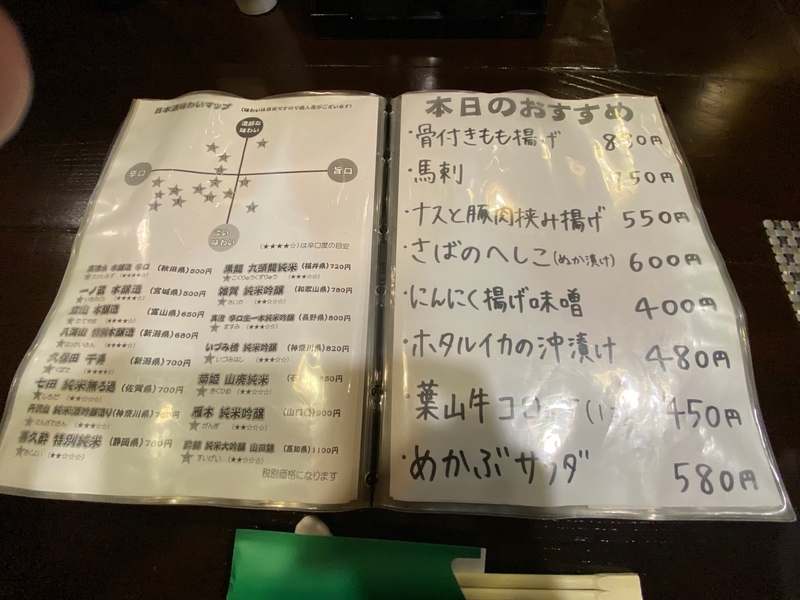 日本酒味わいマップ (味わいは目安ですので個人差がございます)
濃醇な
味わい
辛口
旨口
味わい
(★★★★☆)は辛口度の目安
本醸造 辛口 (秋田県)500円
一ノ蔵 本醸造 (宮城県)500円
立山 本醸造 (富山県)650円
八海山 特別本醸造 (新潟県)680円
久保田 千寿 (新潟県)700円
七田 純米無ろ過 (佐賀県)700円
丹沢山 (神奈川県)
喜久酔 特別純米 (静岡県)
黒龍 九頭龍純米 (福井県)720円
雑賀 純米吟醸 (和歌山県)780円
真澄 辛口生一本純米吟醸 (長野県)800円
いづみ橋 純米吟醸 (神奈川県)820円
菊姫 山廃純米
雁木 純米吟醸 (山口県)900円
酔鯨 純米大吟醸 山田錦 (高知県)1100円
税別価格になります
本日のおすすめ
・骨付きもも揚げ
・馬刺
・ナスと豚肉挟み揚げ 550円
・さばのへしこ(ぬか漬け) 600円
・にんにく揚げ味噌 400円
・ホタルイカの沖漬け 480円
・葉山牛コロッケ 450円
・めかぶサラダ 580円